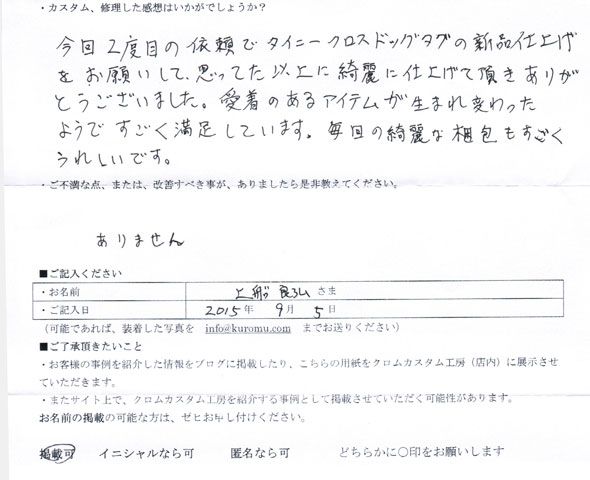 ・カスタム、修理した感想はいかがでしょうか？
今回2度目の依頼でタイニークロスドッグタグの新品仕上げ
をお願いして、思ってた以上に綺麗に仕上げて頂きありが
とうございました。愛着のあるアイテムが生まれ変わった
ようですごく満足しています。毎回の綺麗な梱包もすごく
うれしいです。
・ご不満な点、または、改善すべき事が、ありましたら是非教えてください。
ありません
■ご記入ください
・お名前 上 さま
・ご記入日 2015年 9月 5日
（可能であれば、装着した写真を info@kuromu.com までお送りください）
■ご了承頂きたいこと
・お客様の事例を紹介した情報をブログに掲載したり、こちらの用紙をクロムカスタム工房（店内）に展示させ
ていただきます。
・またサイト上で、クロムカスタム工房を紹介する事例として掲載させていただく可能性があります。
お名前の掲載の可能な方は、ゼヒお申し付けください。
掲載可 イニシャルなら可 匿名なら可 どちらかに〇印をお願いします